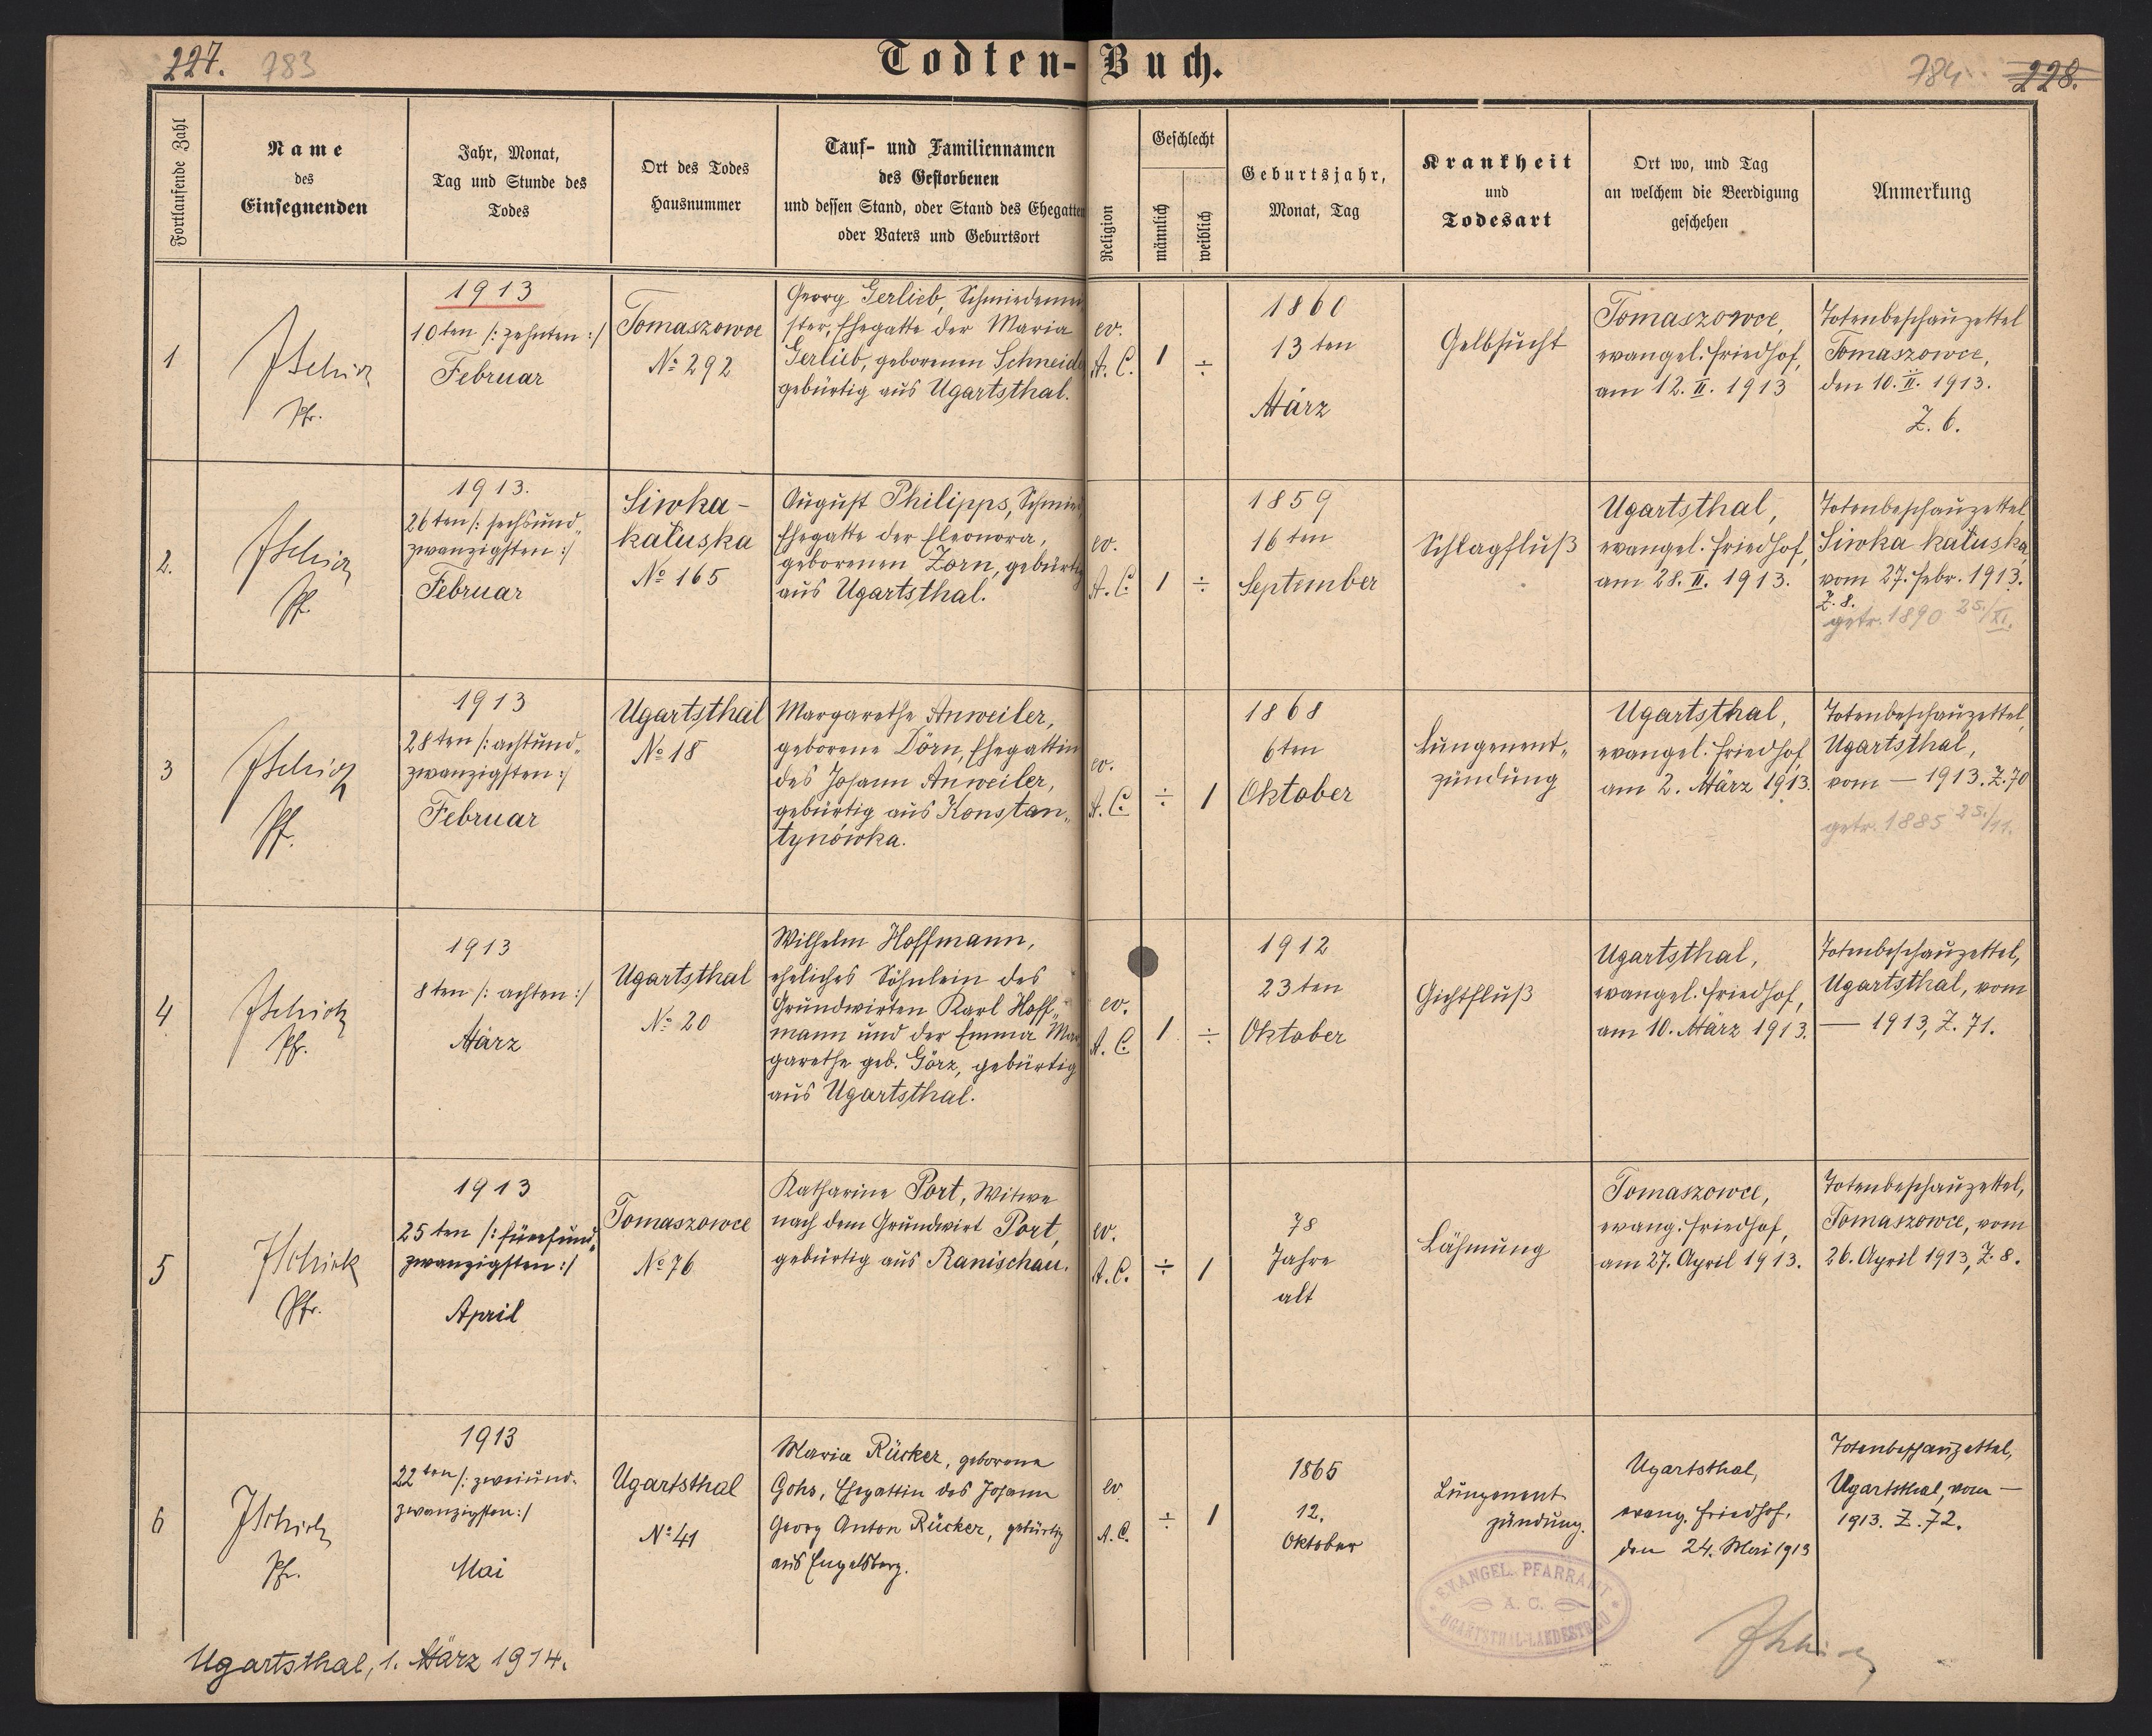 227. 783
Todten-Buch.
784. 228.
Fortlaufende Zahl
Name
des
Einsegnenden
Jahr, Monat,
Tag und Stunde des
Todes
Ort des Todes
Hausnummer
Tauf- und Familiennamen
des Gestorbenen
und dessen Stand, oder Stand des Ehegatten
oder Vaters und Geburtsort
Religion
Geschlecht
männlich
weiblich
Geburtsjahr,
Monat, Tag
Krankheit
und
Todesart
Ort wo, und Tag
an welchem die Beerdigung
geschehen
Anmerkung
1
JSchick
Pfr.
1913
10ten /: zehnten :/
Februar
Tomaszowce
No 292
Georg Gerlieb, Schmiedemei
ster, Ehegatte der Maria
Gerlieb, geborenen Schneider
gebürtig aus Ugartsthal.
ev.
A. C.
1
÷
1860
13ten
März
Gelbsucht
Tomaszowce,
evangel. Friedhof,
am 12. II. 1913
Totenbeschauzettel
Tomaszowce,
den 10. II. 1913.
Z. 6.
2.
JSchick
Pf.
1913.
26ten /: sechsund„
zwanzigsten :/
Februar
Siwka-
kałuska
No 165
August Philipps, Schmied,
Ehegatte der Eleonora,
geborenen Zorn, gebürtig
aus Ugartsthal.
ev.
A. C.
1
÷
1859
16ten
September
Schlagfluß
Ugartsthal,
evangel. Friedhof,
am 28. II. 1913.
Totenbeschauzettel
Siwka kałuska,
vom 27. Febr. 1913.
Z. 8.
getr. 1890 25./XI.
3
JSchick
Pf.
1913
28ten /: achtund„
zwanzigsten :/
Februar
Ugartsthal
No 18
Margarethe Anweiler,
geborene Dörn, Ehegattin
des Johann Anweiler,
gebürtig aus Konstan„
tynówka.
ev.
A. C.
÷
1
1868
6ten
Oktober
Lungenent„
zündung
Ugartsthal,
evangel. Friedhof,
am 2. März 1913.
Totenbeschauzettel,
Ugartsthal,
vom — 1913. Z. 70
getr. 1885 25./11.
4
JSchick
Pfr.
1913
8ten /: achten :/
März
Ugartsthal
No 20
Wilhelm Hoffmann,
eheliches Söhnlein des
Grundwirten Karl Hoff„
mann und der Emma Mar
garethe geb. Görz, gebürtig
aus Ugartsthal.
ev.
A. C.
1
÷
1912
23ten
Oktober
Gichtfluß
Ugartsthal,
evangel. Friedhof,
am 10. März 1913.
Totenbeschauzettel,
Ugartsthal, vom
— 1913, Z. 71.
5
JSchick
Pfr.
1913
25ten /: fünfund„
zwanzigsten :/
April
Tomaszowce
No 76
Katharine Port, Witwe
nach dem Grundwirt Port,
gebürtig aus Ranischau.
ev.
A. C.
÷
1
78
Jahre
alt
Lähmung
Tomaszowce,
evang. Friedhof,
am 27. April 1913.
Totenbeschauzettel,
Tomaszowce, vom
26. April 1913, Z. 8.
6
JSchick
Pfr.
1913
22ten /: zweiund-
zwanzigsten :/
Mai
Ugartsthal
No 41
Maria Rücker, geborene
Gohs, Ehegattin des Johann
Georg Anton Rücker, gebürtig
aus Engelsberg.
ev
A. C.
÷
1
1865
12.
Oktober
Lungenent
zündung.
Ugartsthal,
evang. Friedhof,
den 24. Mai 1913
Totenbeschauzettel,
Ugartsthal, vom —
1913. Z. 72.
EVANGEL. PFARRAMT
A. C.
UGARTSTHAL-LANDESTREU
JSchick
Ugartsthal, 1. März 1914.